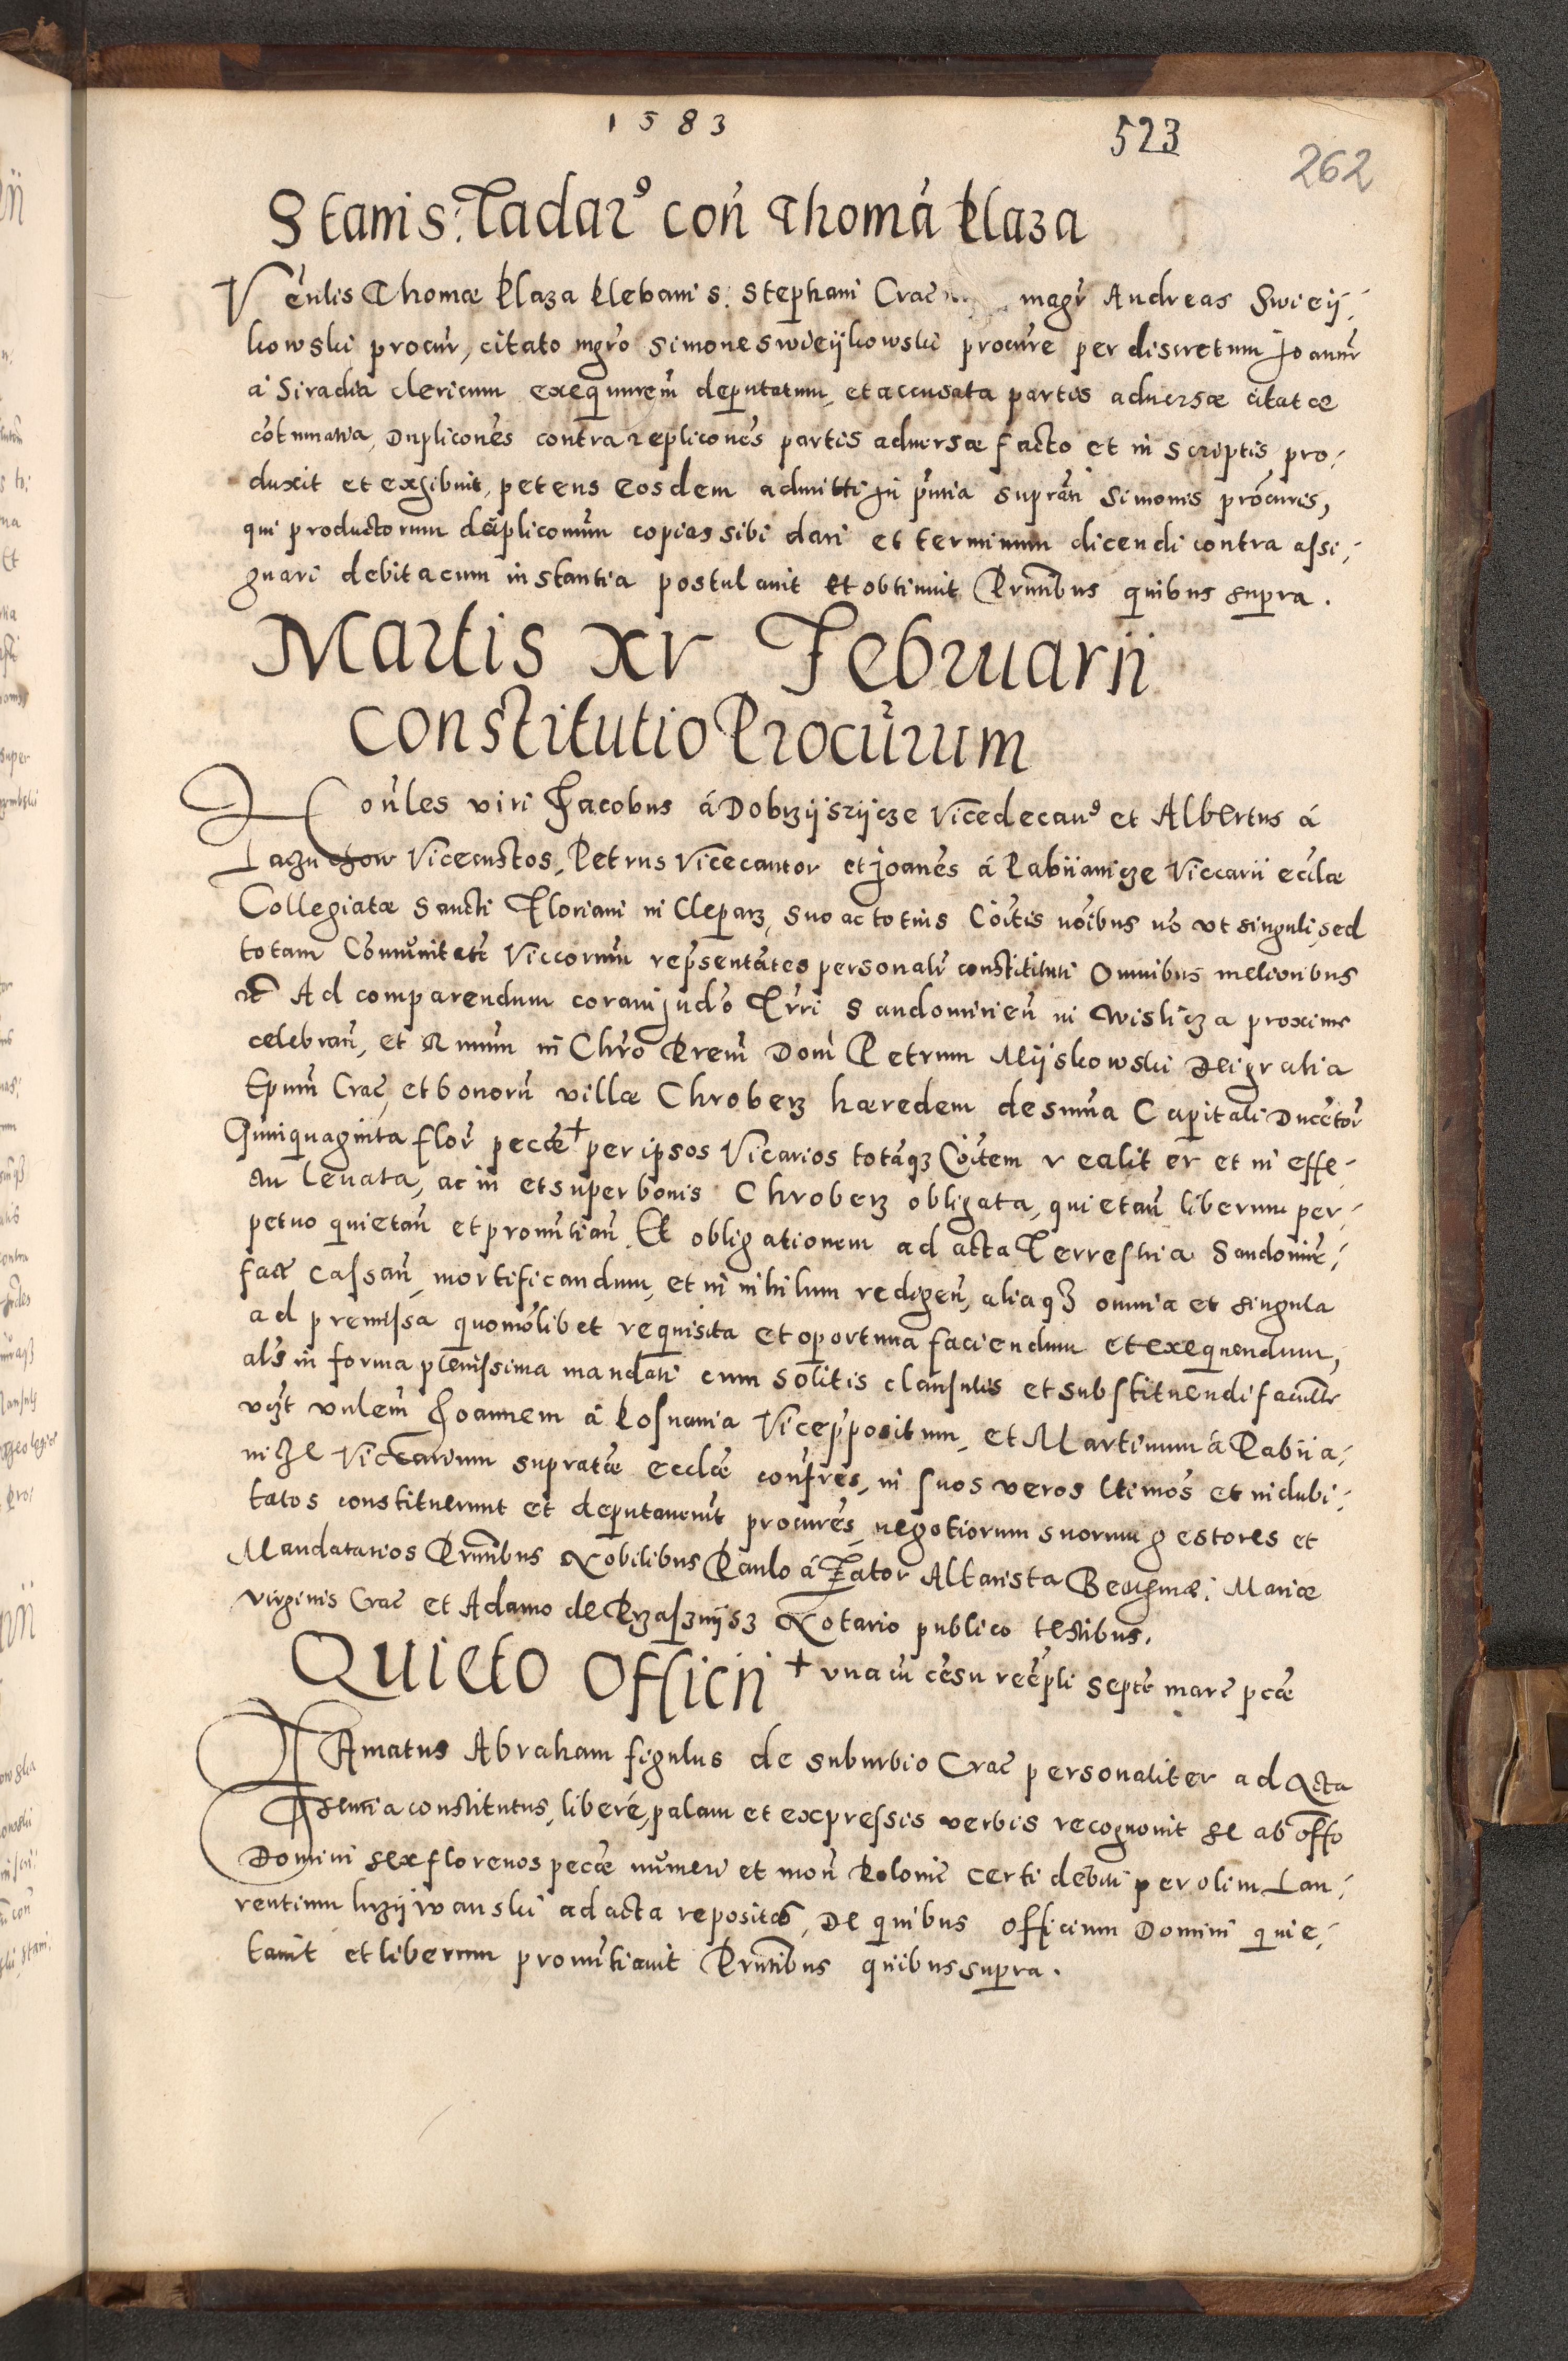 1583
523
262
Stanis: Tadarꝰ con̄ Thomá Plaza
Vēnlis Thomæ Plaza Plebani S. Stephani Crac̄ magr̄ Andreas Swieÿ-
kowski procur̄, citato mgr̄o Simone Swieÿkowski procūre per discretum Joannē
á Siradia clericum exequutem̄ deputatum, et accusata partis adversæ citatæ
cōtumatia, Duplicoñes contra replicoñes partis adversæ facto et in scriptis pro-
duxit et exhibuit, petens eosdem admitti in p̄ntia supranti Simonis procūris,
qui productorum duplicoñum copias sibi dari et terminum dicendi contra assi-
gnari debita cum instantia postulavit et obtinuit Prn̄tibus quibus supra.
Martis xv Februarii
Constitutio Procūrum
Hon̄les viri Jacobus á Dobrzÿsrÿcze Vicedecanꝰ et Albertus á
Vicecustos, Petrus Vicecantor et Joanēs á Pabiianicze Viccarii eccl̄æ
Collegiatæ Sancti Floriani in Cleparz, suo ac totius Cōitis noībus nō ut singuli, sed
totam Comūnitatē Viccorum rep̄sentātes personalr̄ constitituti Omnibus melioribus
etc̄ Ad comparendum coram judō Trr̄i Sandomirien̄ in Wisliçza proxime
celebran̄, et Rmum in Chrō Prem̄ Dom̄ Petrum Mÿskowski Dei gratia
Epum̄ Crac̄, et bonorū villæ Chroberz hæredem de sum̄a Capitali Ducētor̄
Quinquaginta flor̄ peccē + per ipsos Vicarios totāqz Cōitem realiter et in effe-
ctu levata, ac in et super bonis Chroberz obligata, quietan̄ liberum per-
petuo quietan̄ et pronūtian̄. Et obligationem ad acta Terrestria Sandomir̄-
fact̄ cassan̄, mortificandum, et in nihilum redigen̄, aliaqz omnia et singula
ad premissa quomōlibet requisita et oportuna faciendum et exequendum,
al̄s in forma plenissima mandati cum solitis clausulis et substituendi facult̄e
uti vn̄lem̄ Joannem á Posnania Vicep̄positum, et Martinum á Pabiia-
nicze Viccarium supratæ eccl̄æ confrēs, in suos veros ltimos et indubi-
tatos constituerunt et deputaverūt procūres, negotiorum suorum gestores et
Mandatarios Prn̄tibus Nobilibus Paulo á Zator Altarista Beatissimæ Mariæ
Virginis Crac̄ et Adamo de Przasznÿsz Notario publico testibus.
Quieto Officii
+ una cū cēsu septē marc̄ pcæ
Famatus Abraham figulus de suburbio Crac̄ personaliter ad Acta
p̄sentia constitutus, liberé, palam et expressis verbis recognovit se ab offō
Domini sex florenos pecc̄æ nūmeri et mon̄ Polonic̄ certi debiti per olim Lau-
rentium ad acta repositos, De quibus officium Domini quie-
tavit et liberum pronūtiavit Prn̄tibus quibus supra.